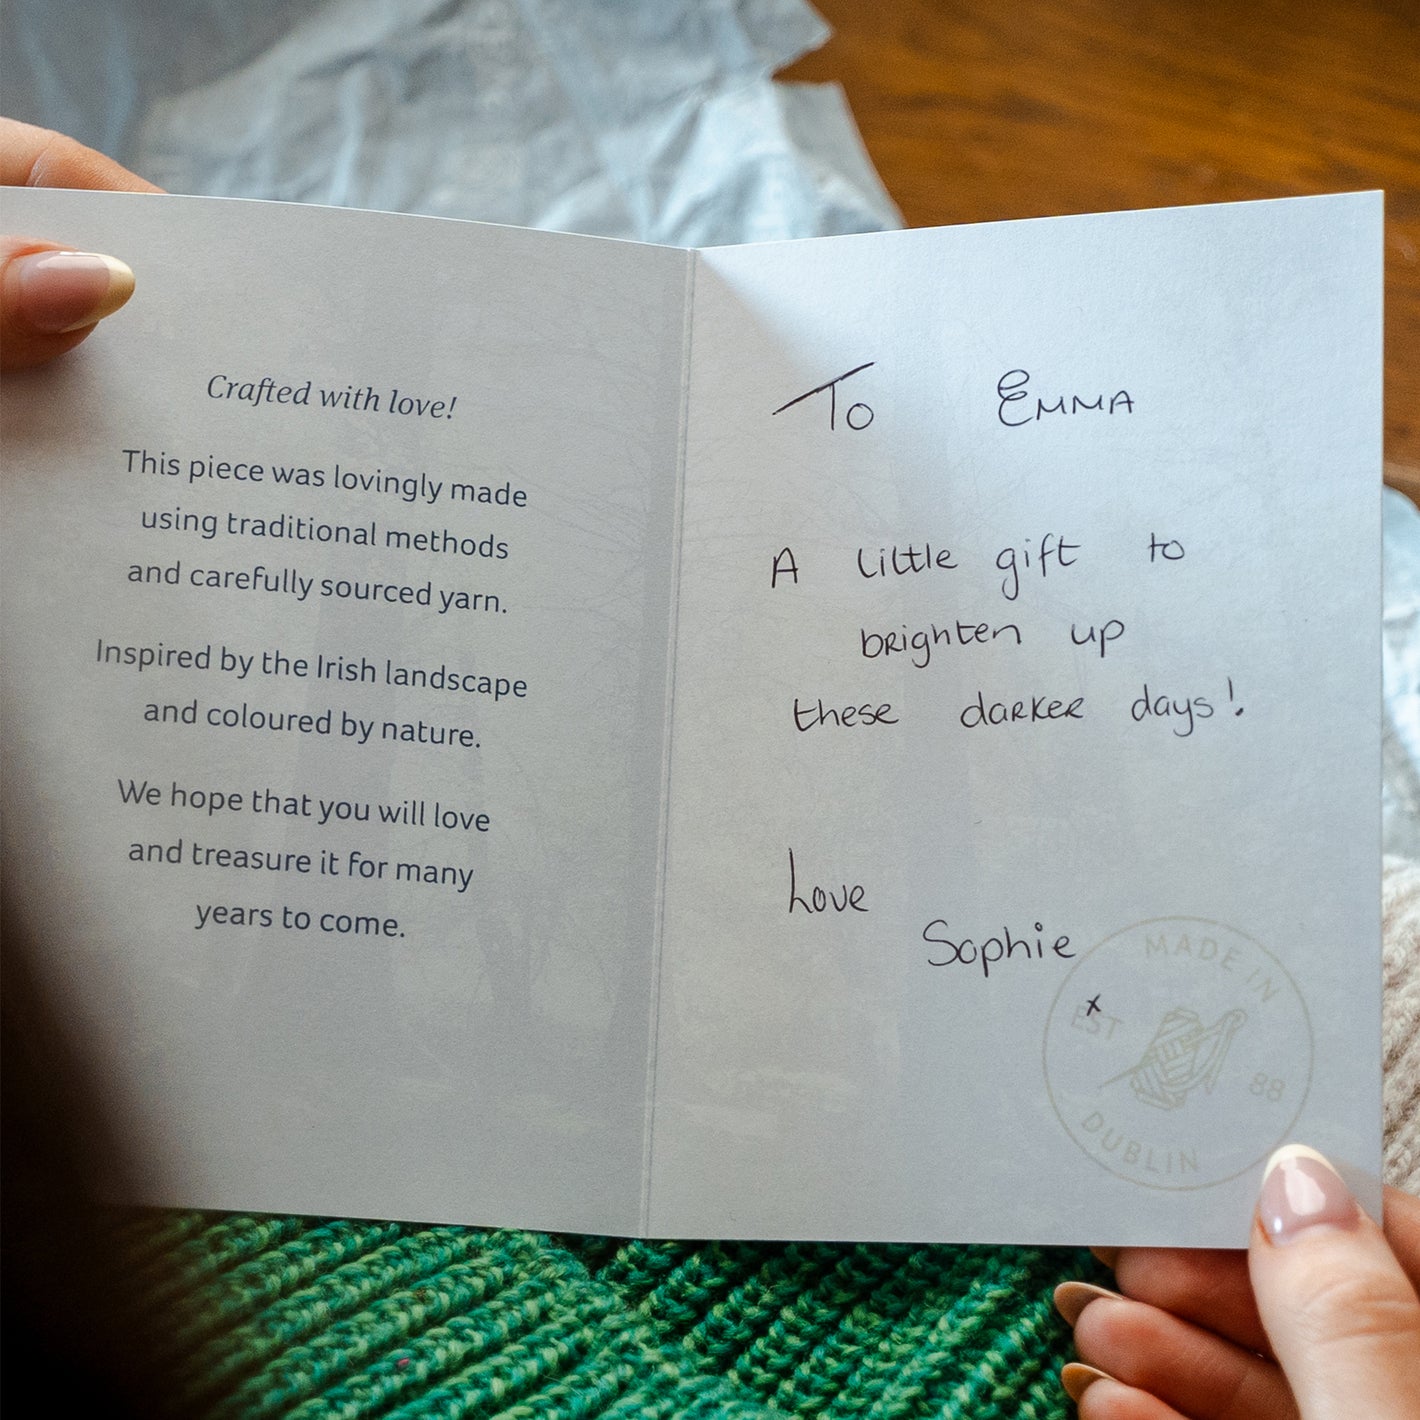 Crafted with love!
This piece was lovingly made
using traditional methods
and carefully sourced yarn.
Inspired by the Irish landscape
and coloured by nature.
We hope that you will love
and treasure it for many
years to come.
To Emma
A little gift to
brighten up
these darker days!
Love
Sophie
x
MADE IN
EST 88
DUBLIN